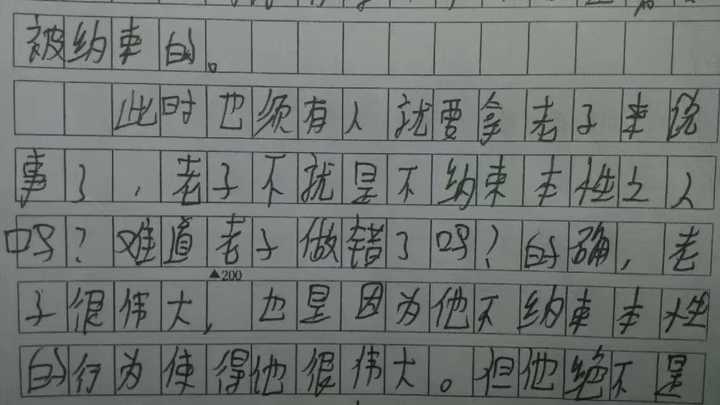 被纳束的。
此时也须有人就要拿老子来说
事了，老子不就是不纳束本性之人
吗？难道老子做错了吗？的确，老
▲200
子很伟大，也是因为他不纳束本性
的行为使得他很伟大。但他绝不是